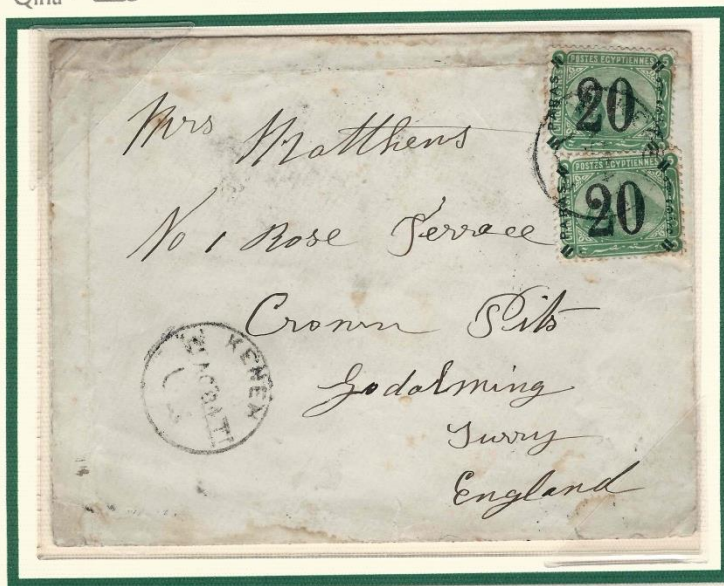 Qina
POSTES EGYPTIENNES
PARAS 20
POSTES EGYPTIENNES
PARAS 20
Mrs Matthews
No 1 Rose Terrace
Crown Pits
Godalming
Surry
England
KENEH